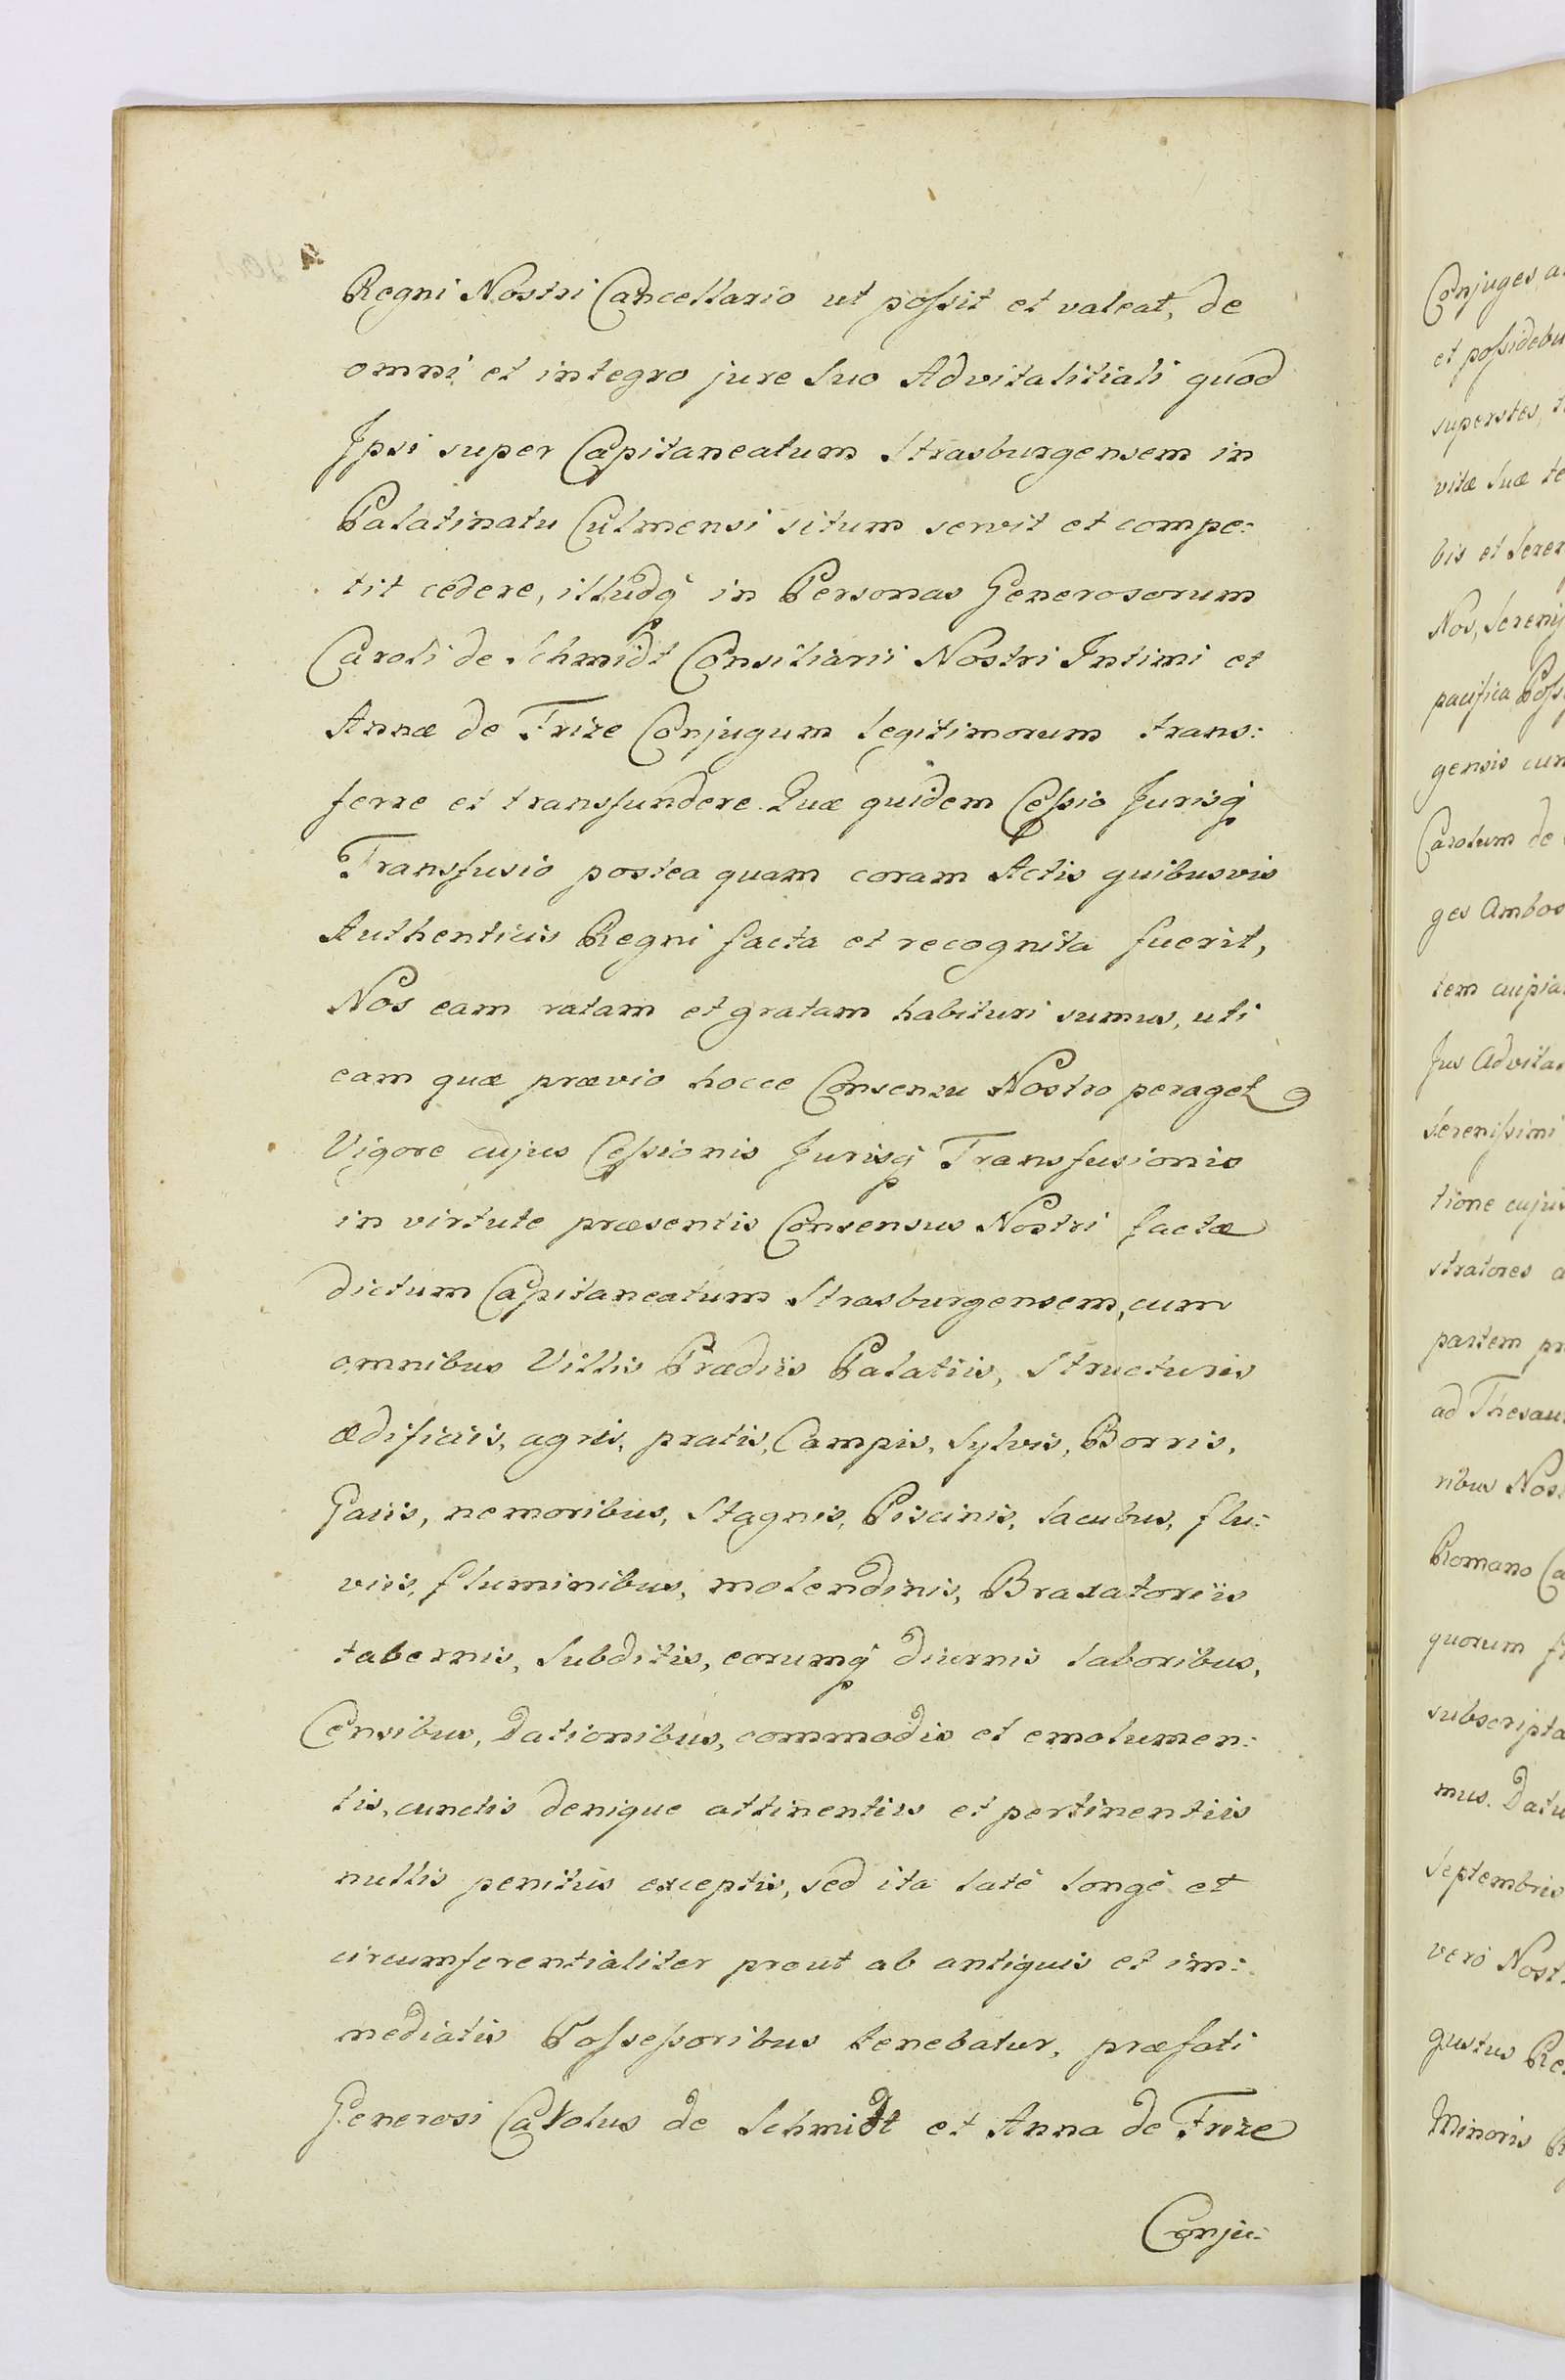 Regni Nostri Cancellario ut possit et valeat, de
omni et integro jure suo Advitalitiali quod
Ipsi super Capitaneatum Strasburgensem in
Palatinatu Culmensi situm servit et compe:
tit cedere, illudq in Personas Generosorum
Caroli de Schmidt Consiliarii Nostri Intimi et
Annæ de Frize Conjugum legitimorum trans:
ferre et transfundere. Quæ quidem Cessio Jurisq
Transfusio postea quam coram Actis quibusvis
Authenticis Regni facta et recognita fuerit,
Nos eam ratam et gratam habituri sumus, uti
eam quæ prævio hocce Consensu Nostro peraget
Vigore cujus Cessionis Jurisq Transfusionis
in virtute præsentis Consensus Nostri factæ
dictum Capitaneatum Strasburgensem, cum
omnibus Villis Prædiis Palatiis, Structuris
ædificiis, agris, pratis, Campis, Sylvis, Borris,
Gaiis, nemoribus, Stagnis, Piscinis, lacubus, flu:
viis, fluminibus, molendinis, Braxatoriis
tabernis, Subditis, eorumq diurnis laboribus,
Censibus, Dationibus, commodis et emolumen:
tis, cunctis denique attinentiis et pertinentiis
nullis penitus exceptis, sed ita latè longè et
circumferentialiter prout ab antiquis et im:
mediatis Possessoribus tenebatur, præfati
Generosi Carolus de Schmidt et Anna de Frize
Conju:
Conjuges, a
et possidebu
superstes, t
vitæ suæ te
bis et Seren
Nos, Sereniss
pacifica Poss
gensis cum
Carolum de
ges Ambos
tem cupia
Jus Advita
Serenissimi
tione cujus
stratores a
partem pr
ad Thesau
ribus Nos
Romano Ca
quorum fi
subscripta
mus. Datu
Septembris
verò Nost
gustus Re
Minoris R